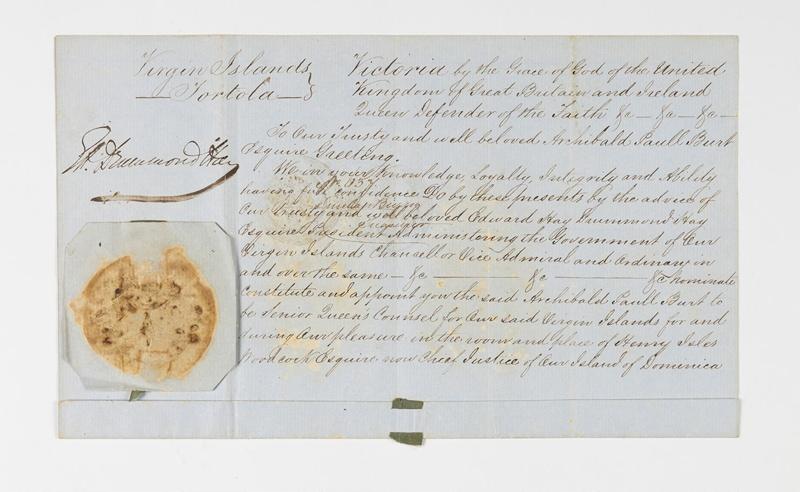 Virgin Islands
Tortola
Victoria by the Grace of God of the United
Kingdom of Great Britain and Ireland
Queen Defender of the Faith &c — &a — &a —
Ed. Drummond Hay
To Our Trusty and well beloved Archibald Paull Burt
Esquire Greeting.
We in your knowledge, Loyalty, Integrity and Ability
having full confidence Do by these presents by the advice of
Our trusty and well beloved Edward Hay Drummond Hay
Esquire President Administering the Government of Our
Virgin Islands Chancellor Vice Admiral and Ordinary in
and over the same — &c — &c — &c nominate
constitute and appoint you the said Archibald Paull Burt to
be Senior Queen's Counsel for Our said Virgin Islands for and
during Our pleasure in the room and place of Henry Isles
Woodcock Esquire now Chief Justice of Our Island of Dominica